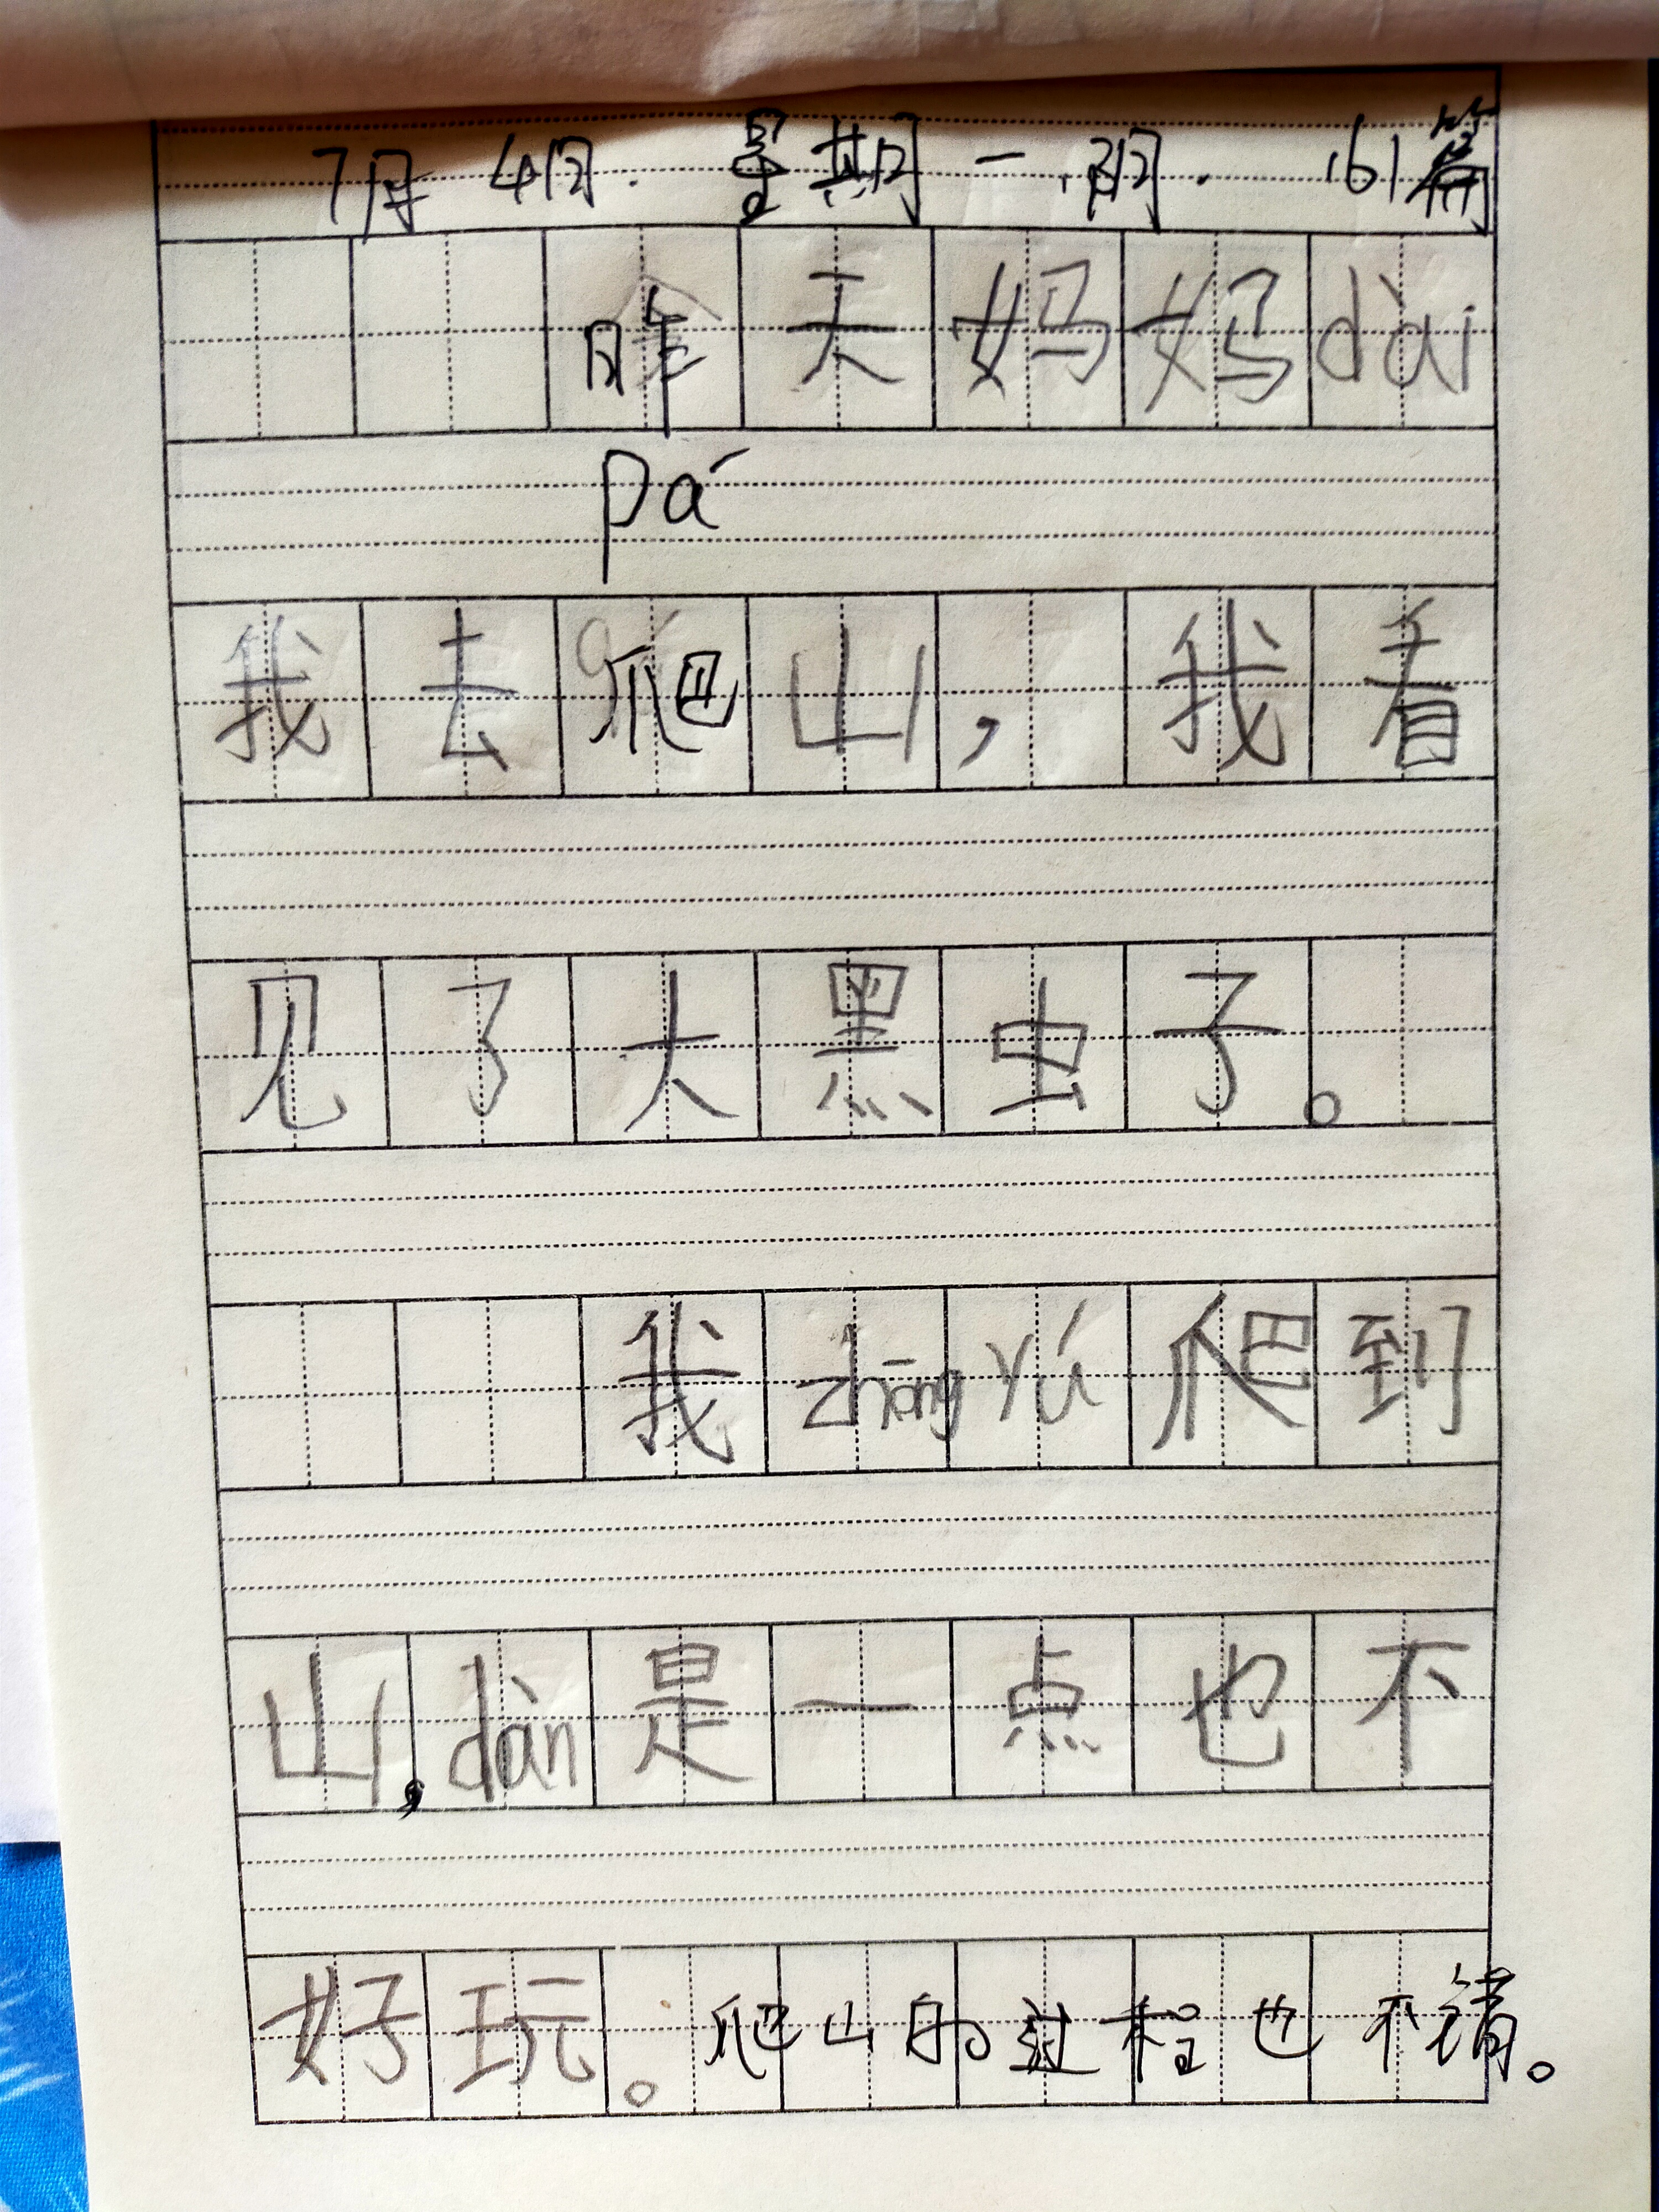 7月4日. 星期一. 阴. 161篇
昨天妈妈dài
pá
我去爬山，我看
见了大黑虫子。
我zhōng yú爬到
山，dàn是一点也不
好玩。爬山的过程也不错。